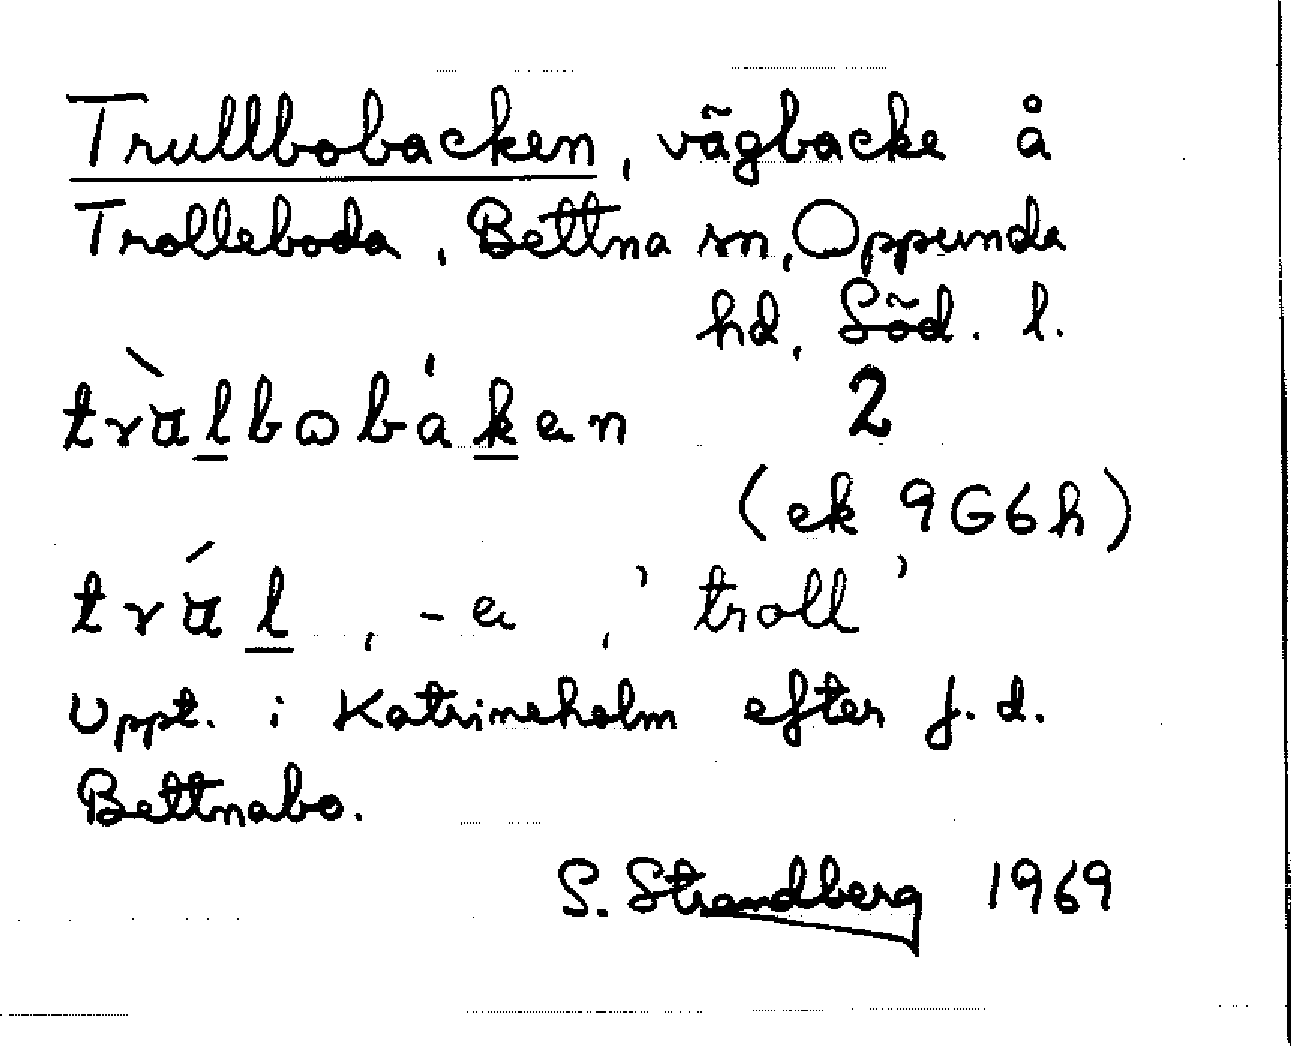 Trullbobacken, vägbacke å
Trolleboda, Bettna sn, Oppunda
hd, Söd. l.
2
(ek 9G6h)
, -a, 'troll'
Uppt. i Katrineholm efter f.d.
Bettnabo.
S. Strandberg 1969